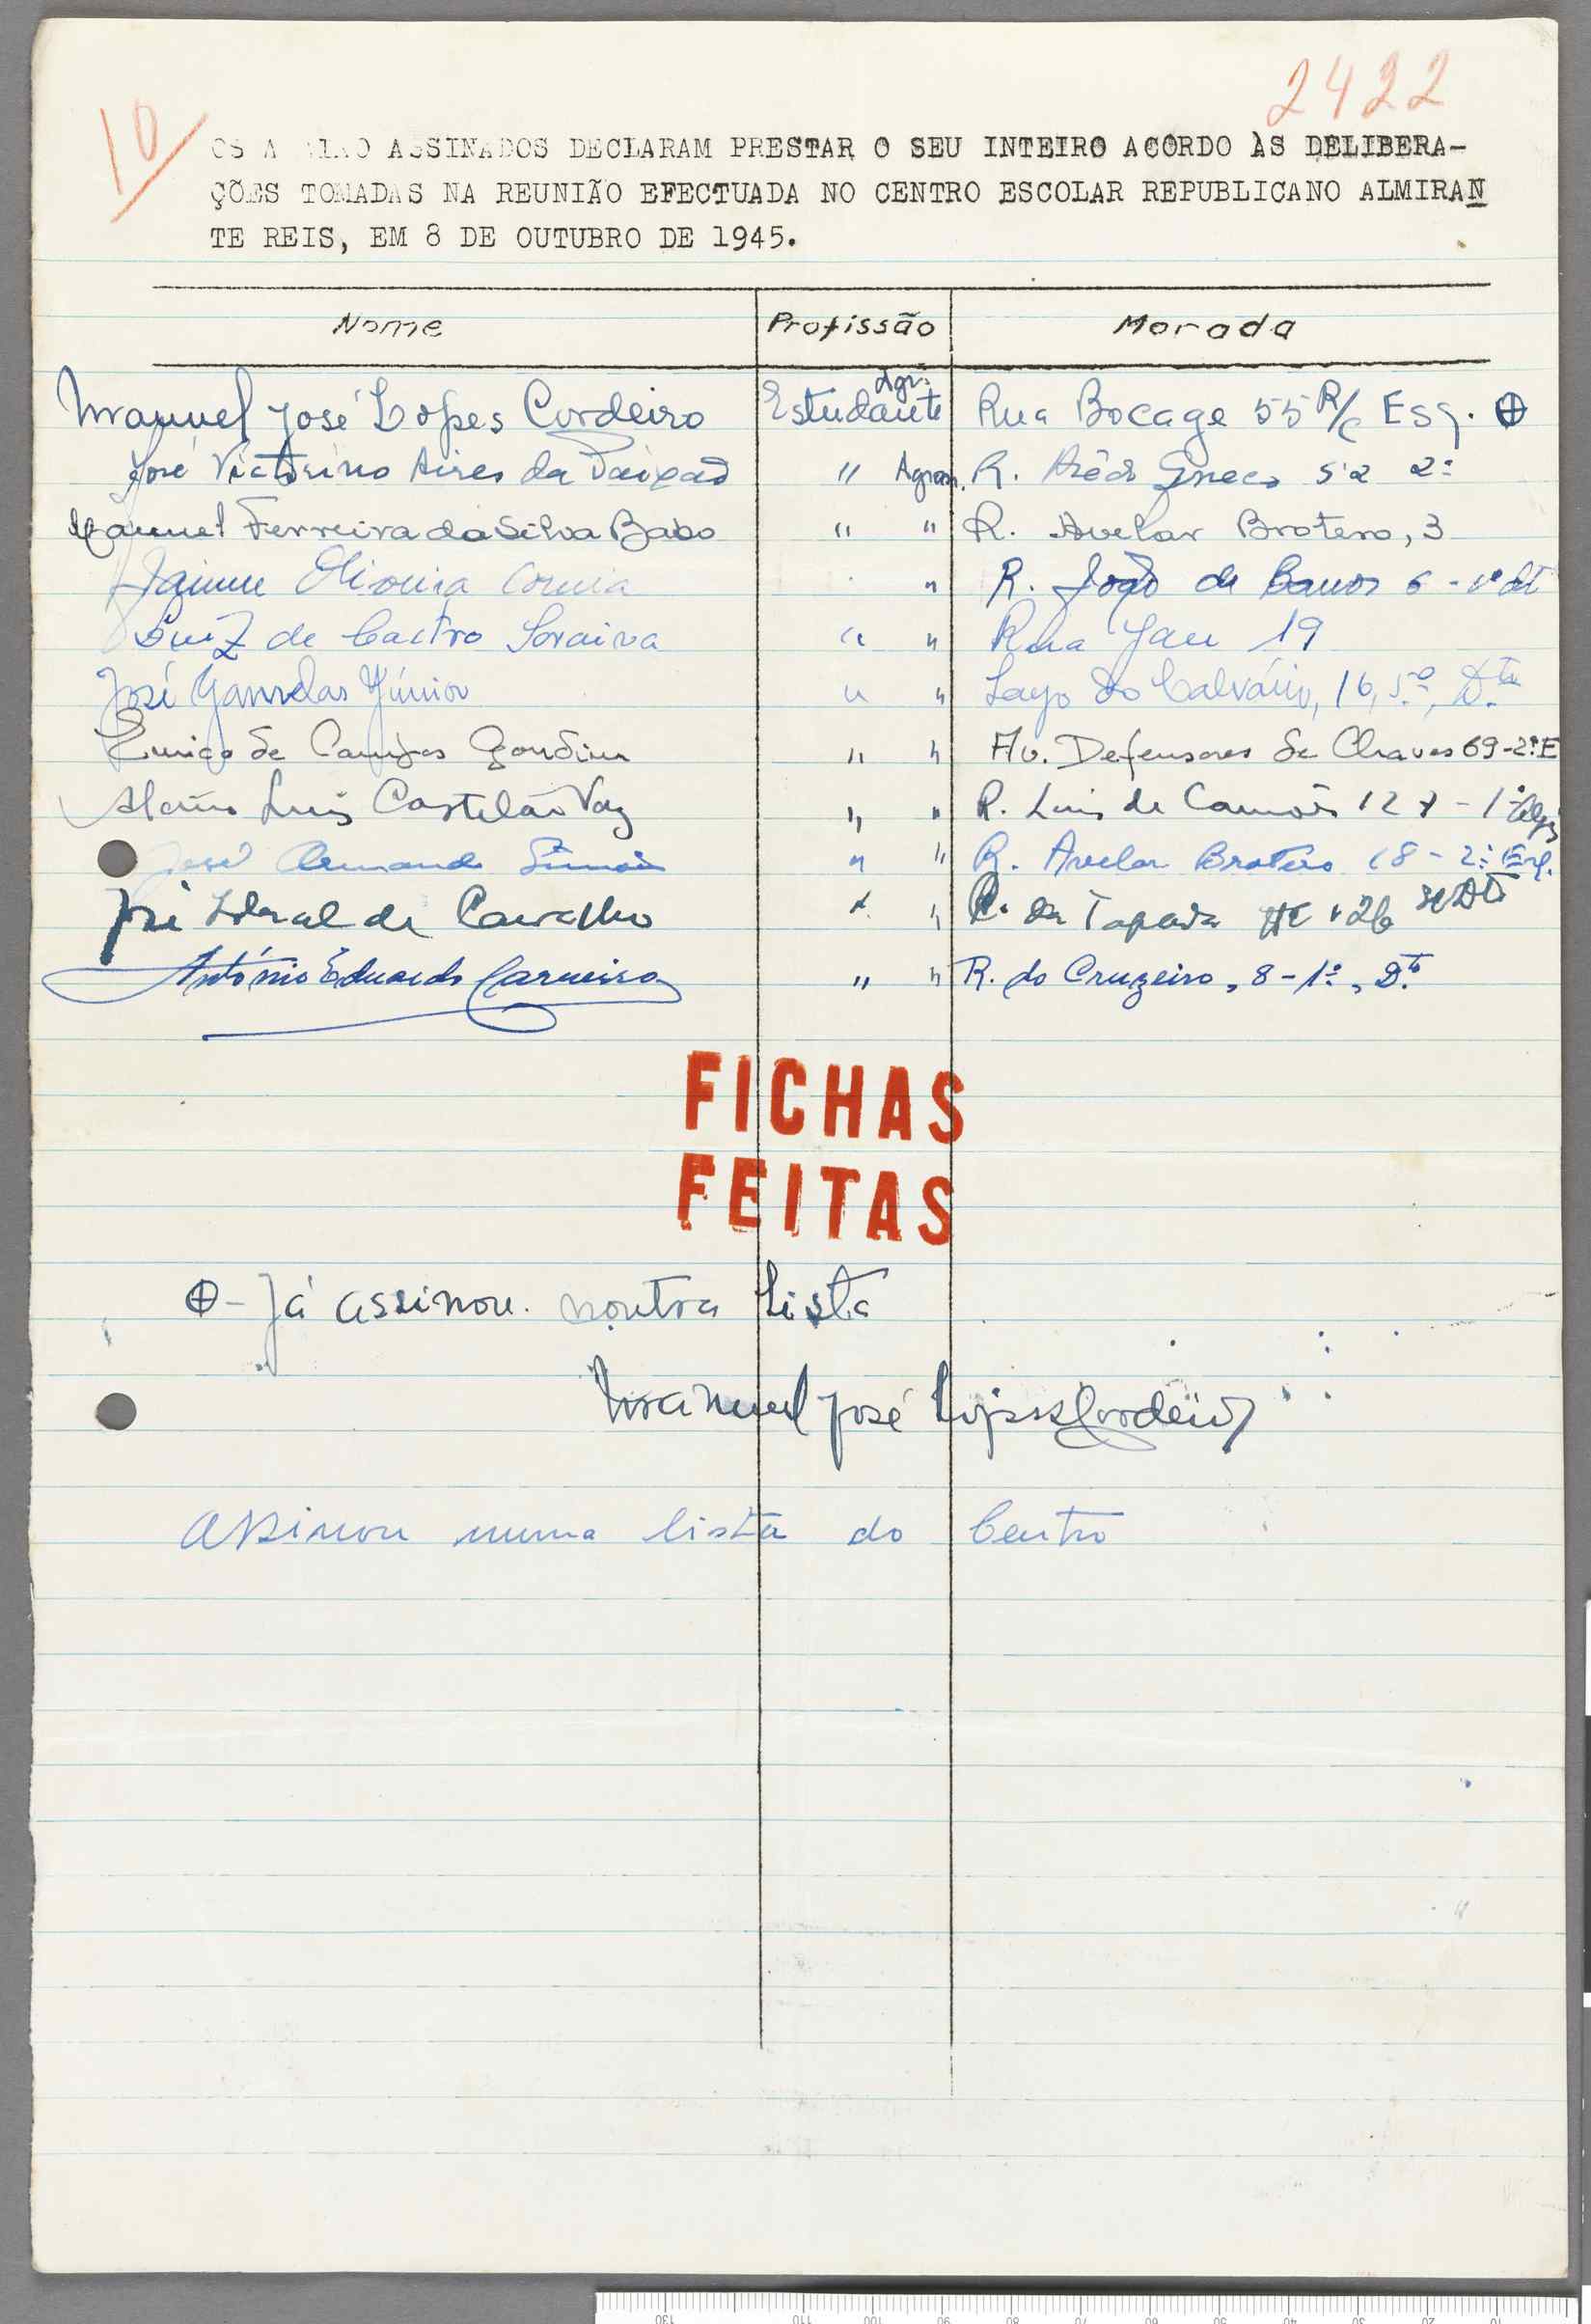 2422
10
OS A AIXO ASSINADOS DECLARAM PRESTAR O SEU INTEIRO ACORDO ÀS DELIBERA-
ÇÕES TOMADAS NA REUNIÃO EFECTUADA NO CENTRO ESCOLAR REPUBLICANO ALMIRAN
TE REIS, EM 8 DE OUTUBRO DE 1945.
Nome Profissão Morada
Manuel José Lopes Cordeiro Estudante Agr. Rua Bocage 55 R/c Esq. ⊕
José Victorino Aires da Paixão " Agron. R. 52 2º
Manuel Ferreira da Silva Babo " " R. Avelar Brotero, 3
Jaime Oliveira Correia " R. João de Barros 6 - 1º dt
Luiz de Castro Saraiva " " Rua Jau 19
José Júnior " " Largo do Calvário, 16, 5º, Dto
Eurico de Campos Gondim " " Av. Defensores de Chaves 69-2º E
Luis Castelão Vaz " " R. Luis de Camões 127 - 1º
José Armando Simões " " R. Avelar Brotero 18 - 2º Esq.
José de Carvalho " " C. da Tapada
António Eduardo Carneiro " " R. do Cruzeiro, 8-1º, Dto
FICHAS
FEITAS
⊕ - Já assinou noutra lista
Manuel José Lopes Cordeiro
Assinou numa lista do Centro